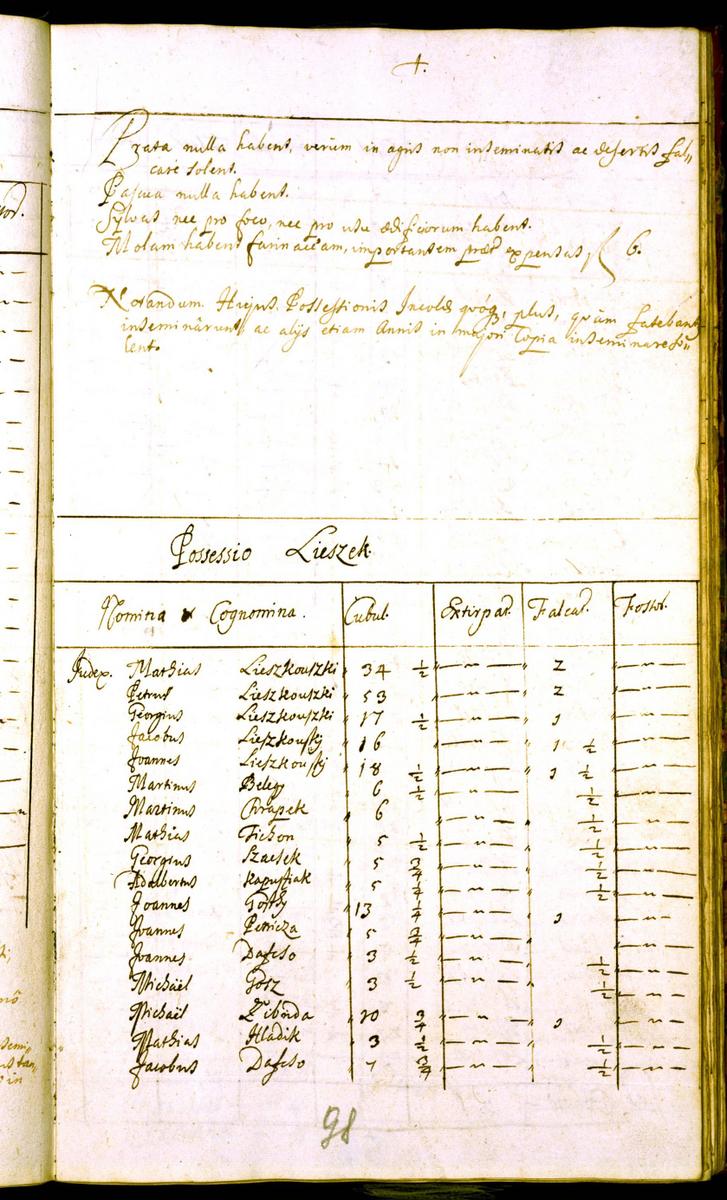 4.
Prata nulla habent, verùm in agris non inseminatis ac desertis fal„
care solent.
Pascua nulla habent.
Sylvas nec pro foco, nec pro usu ædificiorum habent.
Molam habent farinaceam, importantem præt expensas, f 6.
Notandum. Hujus Possessionis Incolæ quóq3, plus, quàm fatebant
inseminârunt, ac alijs etiam Annis in majori Copia inseminare so„
lent.
Possessio Lieszek.
Nomina & Cognomina. Cubul. Extirpat. Falcat. Fossor.
Judex. Mathias Lieszkouszki 34 ½ 2
Petrus Lieszkouszki 53 2
Georgius Lieszkouszki 17 ½ 1
Jacobus Lieszkouszky 16 1 ½
Joannes Lieszkouszky 18 ½ 1 ½
Martinus Beleg 6 ½ ½
Martinus Chrapek 6 ½
Mathias Fichon 5 ½ ½
Georgius Szacsek 5 ¾ ½
Adalbertus Kapustiak 5 ¾ ½
Joannes Gottly 13 ¼ 1
Joannes 5 ¾
Joannes Dafcso 3 ½ ½
Michäel Gosz 3 ½ ½
Michäel Zibrida 10 ¾ 1
Mathias Hladik 3 ½ ½
Jacobus Dafcso 7 ¾ ½
98